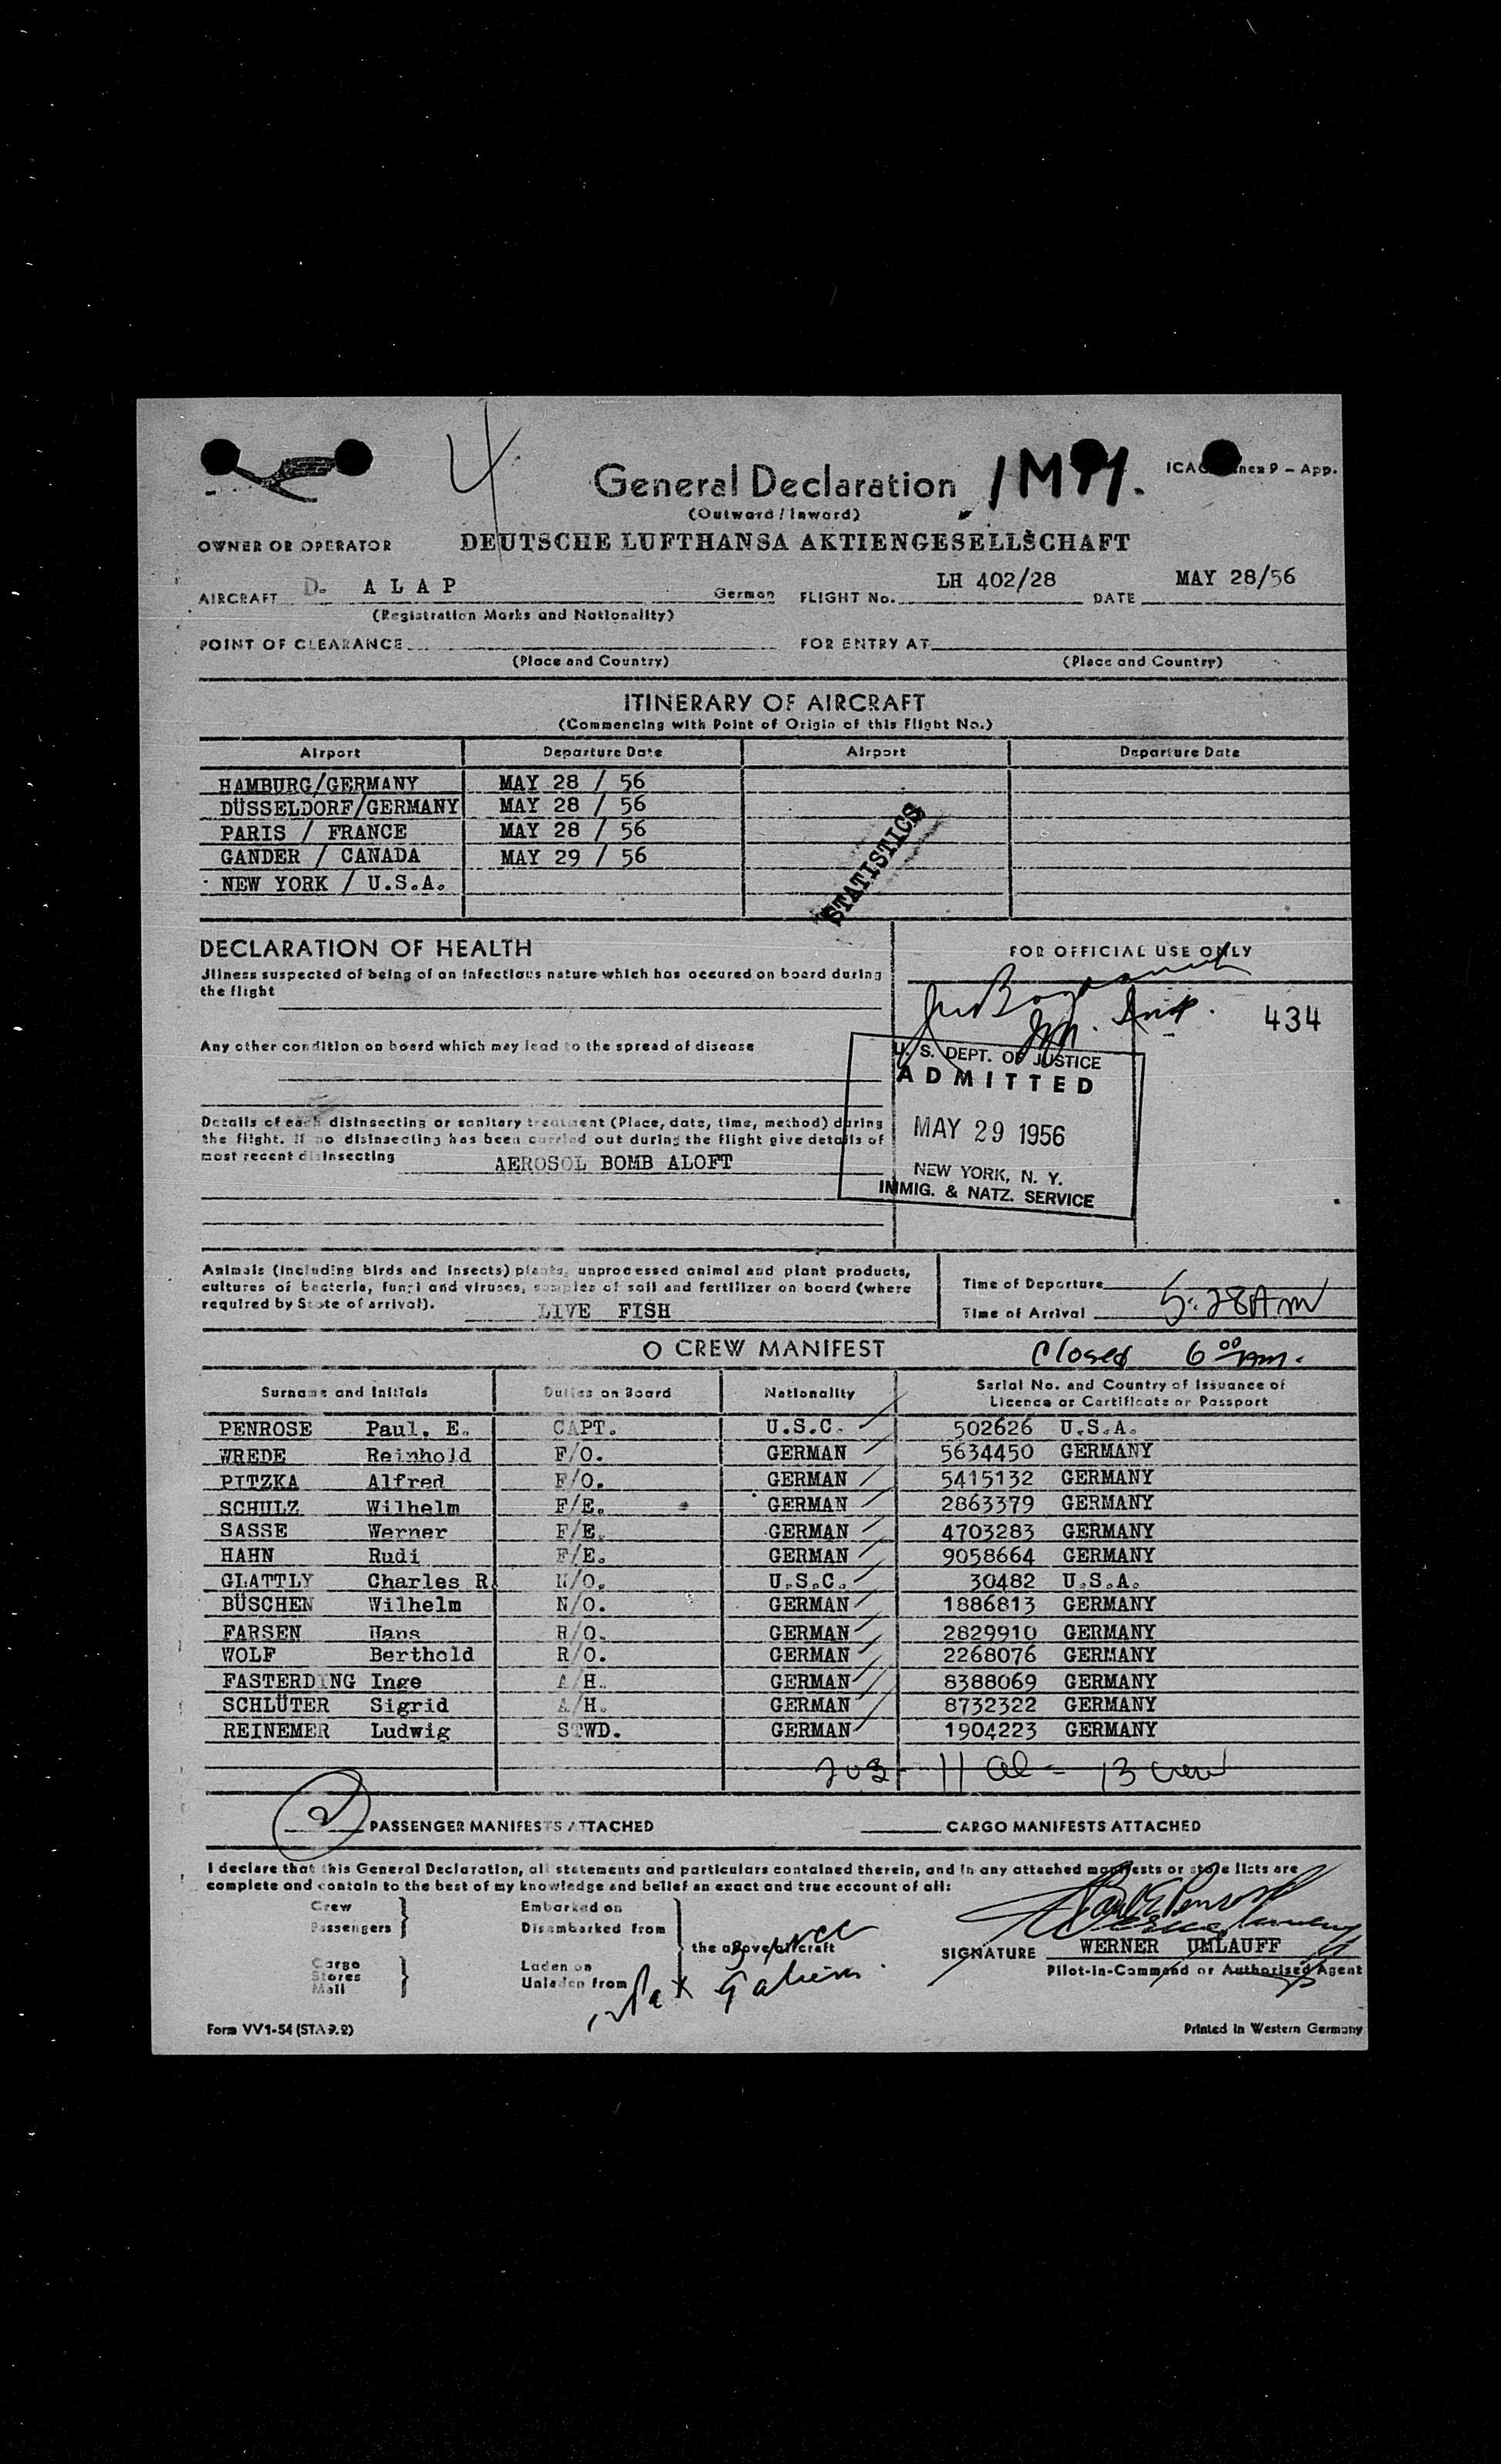 4
General Declaration
IMM.
ICAO Annex 9 – App.
(Outward / Inward)
OWNER OR OPERATOR DEUTSCHE LUFTHANSA AKTIENGESELLSCHAFT
AIRCRAFT D. A L A P German FLIGHT No. LH 402/28 DATE MAY 28/56
(Registration Marks and Nationality)
POINT OF CLEARANCE FOR ENTRY AT
(Place and Country) (Place and Country)
ITINERARY OF AIRCRAFT
(Commencing with Point of Origin of this Flight No.)
Airport Departure Date Airport Departure Date
HAMBURG/GERMANY MAY 28 / 56
DÜSSELDORF/GERMANY MAY 28 / 56
PARIS / FRANCE MAY 28 / 56
GANDER / CANADA MAY 29 / 56
NEW YORK / U.S.A.
STATISTICS
DECLARATION OF HEALTH
Jllness suspected of being of an infectious nature which has occured on board during
the flight
Any other condition on board which may lead to the spread of disease
Details of each disinsecting or sanitary treatment (Place, date, time, method) during
the flight. If no disinsecting has been carried out during the flight give details of
most recent disinsecting AEROSOL BOMB ALOFT
FOR OFFICIAL USE ONLY
434
U. S. DEPT. OF JUSTICE
ADMITTED
MAY 29 1956
NEW YORK, N. Y.
IMMIG. & NATZ. SERVICE
Animals (including birds and insects) plants, unprocessed animal and plant products,
cultures of bacteria, fungi and viruses, samples of soil and fertilizer on board (where
required by State of arrival). LIVE FISH
Time of Departure
Time of Arrival 5:28AM
O CREW MANIFEST
Closed 6 00 AM.
Surname and Initials Duties on Board Nationality Serial No. and Country of Issuance of
Licence or Certificate or Passport
PENROSE Paul. E. CAPT. U.S.C. 502626 U.S.A.
WREDE Reinhold F/O. GERMAN 5634450 GERMANY
PITZKA Alfred F/O. GERMAN 5415132 GERMANY
SCHULZ Wilhelm F/E. GERMAN 2863379 GERMANY
SASSE Werner F/E. GERMAN 4703283 GERMANY
HAHN Rudi F/E. GERMAN 9058664 GERMANY
GLATTLY Charles R. N/O. U.S.C. 30482 U.S.A.
BÜSCHEN Wilhelm N/O. GERMAN 1886813 GERMANY
FARSEN Hans R/O. GERMAN 2829910 GERMANY
WOLF Berthold R/O. GERMAN 2268076 GERMANY
FASTERDING Inge A/H. GERMAN 8388069 GERMANY
SCHLÜTER Sigrid A/H. GERMAN 8732322 GERMANY
REINEMER Ludwig STWD. GERMAN 1904223 GERMANY
2 US 11 al - 13 crew
2 PASSENGER MANIFESTS ATTACHED CARGO MANIFESTS ATTACHED
I declare that this General Declaration, all statements and particulars contained therein, and in any attached manifests or store lists are
complete and contain to the best of my knowledge and belief an exact and true account of all:
Crew
Passengers
Embarked on
Disembarked from
the above aircraft
Cargo
Stores
Mail
Laden on
Unladen from
Paul E Penrose
SIGNATURE WERNER UMLAUFF
Pilot-in-Command or Authorised Agent
Form VV1-54 (STA 9.2)
Printed in Western Germany